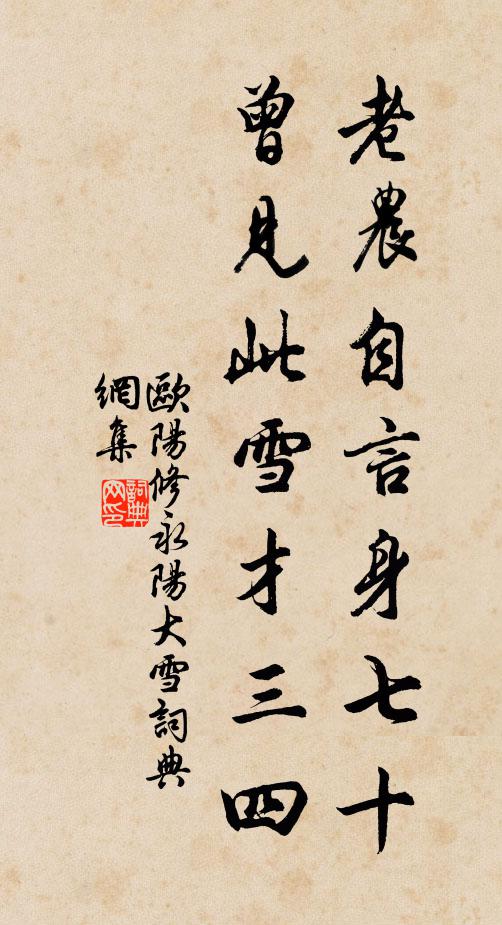 老農自言身七十
曾見此雪才三四
歐陽修永陽大雪詞典
網集
詞典
网印